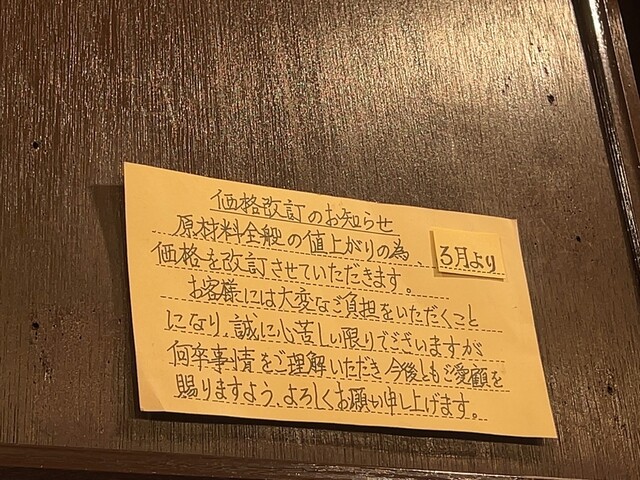 価格改訂のお知らせ
原材料全般の値上がりの為、3月より
価格を改訂させていただきます。
お客様には大変なご負担をいただくこと
になり、誠に心苦しい限りでございますが
何卒事情をご理解いただき今後ともご愛顧を
賜りますよう、よろしくお願い申し上げます。